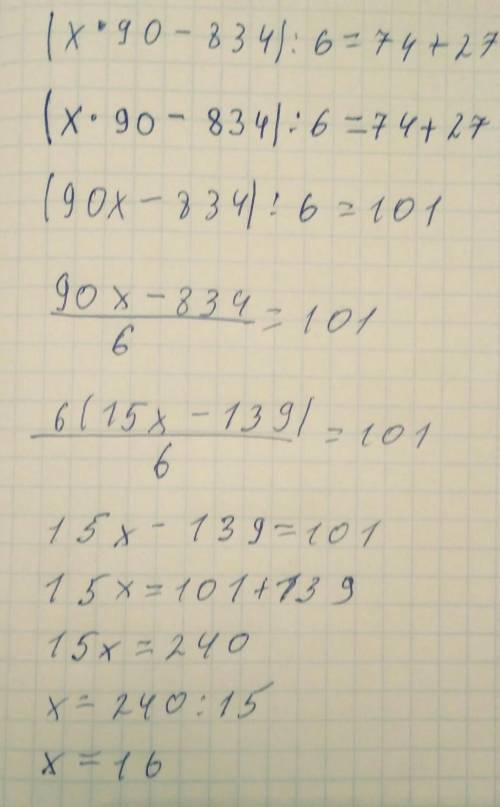 (x·90-834):6=74+27
(x·90-834):6=74+27
(90x-834):6=101
90x-834
6
=101
6(15x-139)
6
=101
15x-139=101
15x=101+139
15x=240
x=240:15
x=16